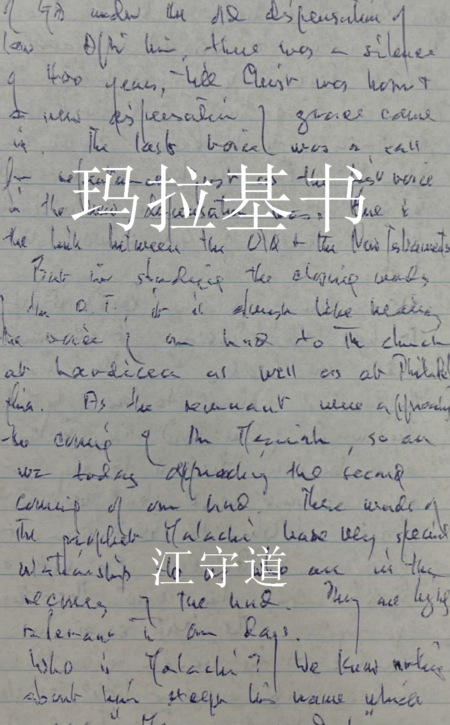 of God under the old dispensation of
law. After him, there was a silence
of 400 years, till Christ was born &
a new dispensation of grace came
in. The last voice was a call
for repentance, just as the first voice
玛拉基书
in the new dispensation was. Here is
the link between the Old & the New Testaments.
But in studying the closing words
of the O.T., it is almost like hearing
the voice of our Lord to the church
at Laodicea as well as at Philadel
phia. As the remnant were approaching
the coming of the Messiah, so are
we today approaching the second
coming of our Lord. These words of
the prophet Malachi have very special
江守道
relationship to us who are in the
of the Lord. They are
relevant to our days.
Who is Malachi? We know nothing
about him except his name which